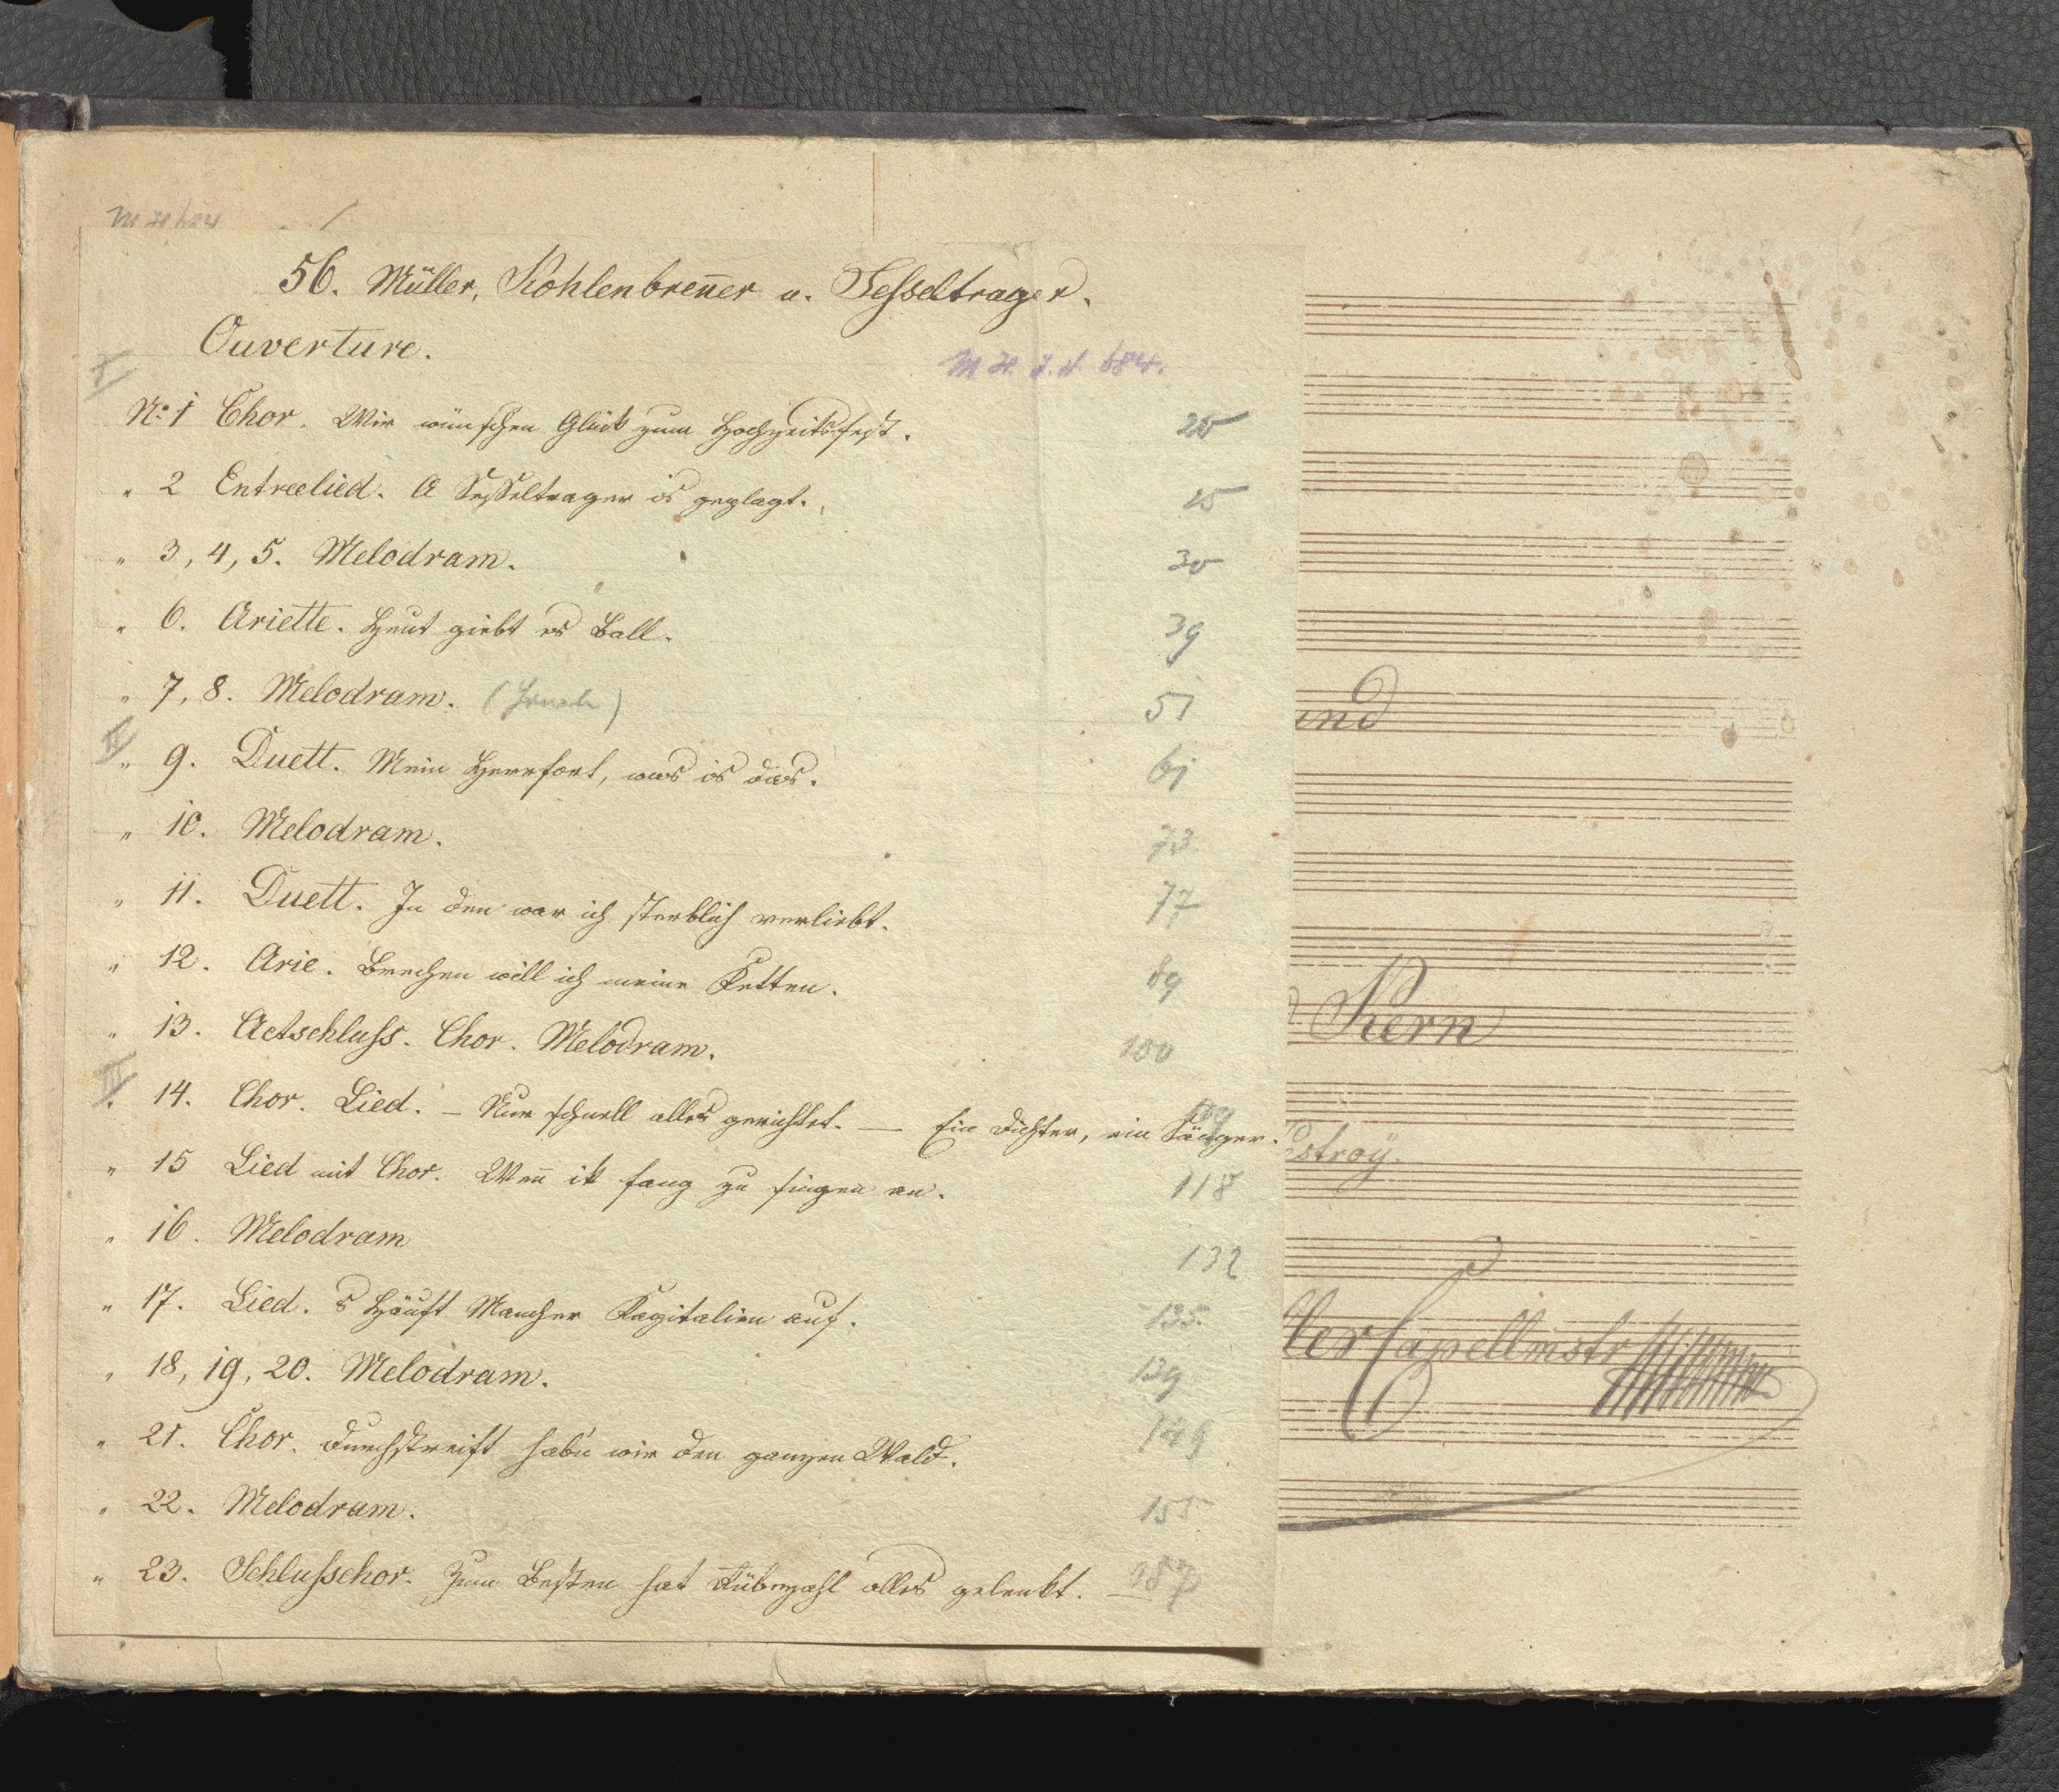 M H 684 /
56. Müller, Kohlenbreñer u. Sesseltrager.
Ouverture.
M. H. I. N. 684.
I
No 1 Chor. Wir wünschen Glück zum Hochzeitsfest. 20
" 2 Entreelied. A Sesseltrager is geplagt. 25
" 3, 4, 5. Melodram. 30
" 6. Ariette. Heut giebt es Ball. 39
" 7, 8. Melodram. 51
II
" 9. Duett. Mein Herrfort, was is das. 61
" 10. Melodram. 73
" 11. Duett. In den war ich sterblich verliebt. 77
" 12. Arie. Brechen will ich meine Ketten. 89
" 13. Actschluss. Chor. Melodram. 100
III
" 14. Chor. Lied. – Nur schnell alles gerichtet. — Ein Dichter, ein Sänger. 109
" 15 Lied mit Chor. Weñ ik fang zu singen an. 118
" 16. Melodram 132
" 17. Lied. s Häuft Mancher Kapitalien auf. 135.
" 18, 19, 20. Melodram. 139
" 21. Chor. Durchstreift hab'n wir den ganzen Wald. 149
" 22. Melodram. 155
" 23. Schlusschor. Zum Besten hat Rübezahl alles gelenkt. — 187
und
Kern
estroÿ.
ller Capellmstr